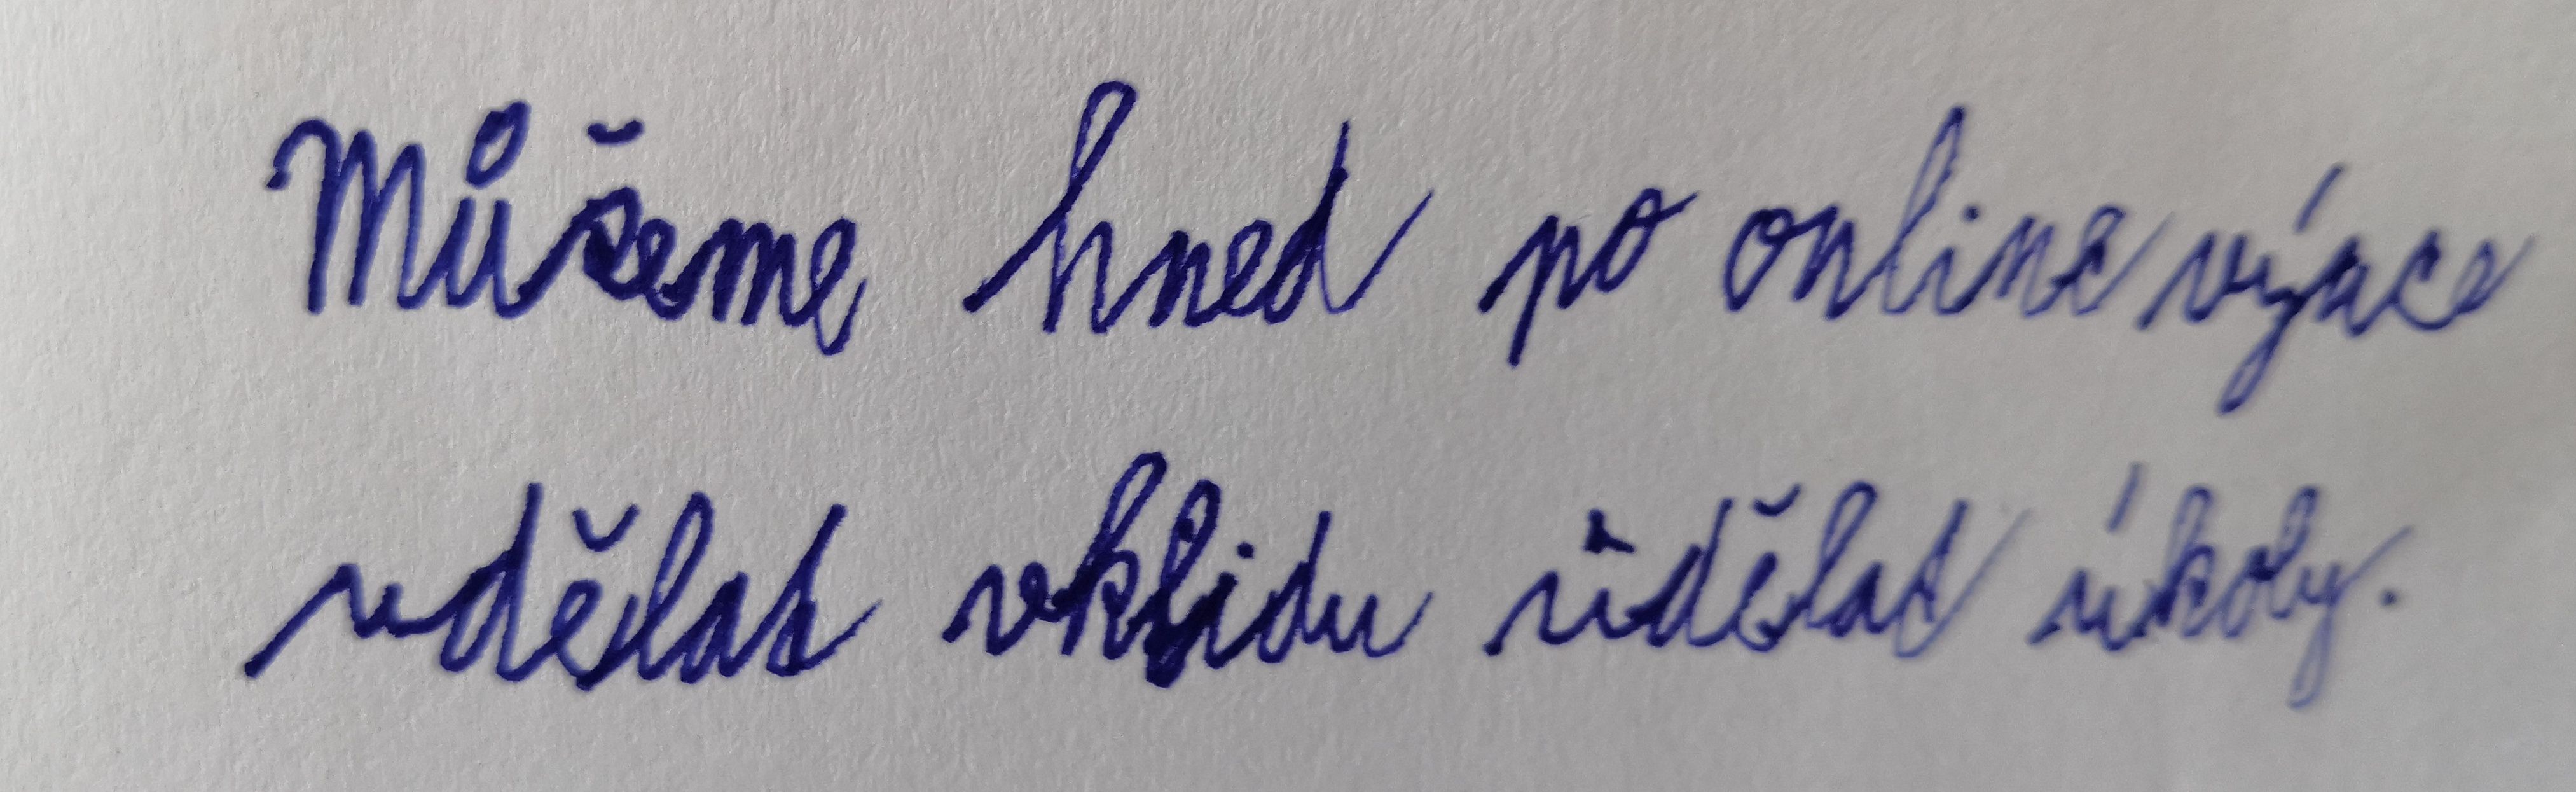 Můžeme hned po online výuce
udělat vklidu udělat úkoly.